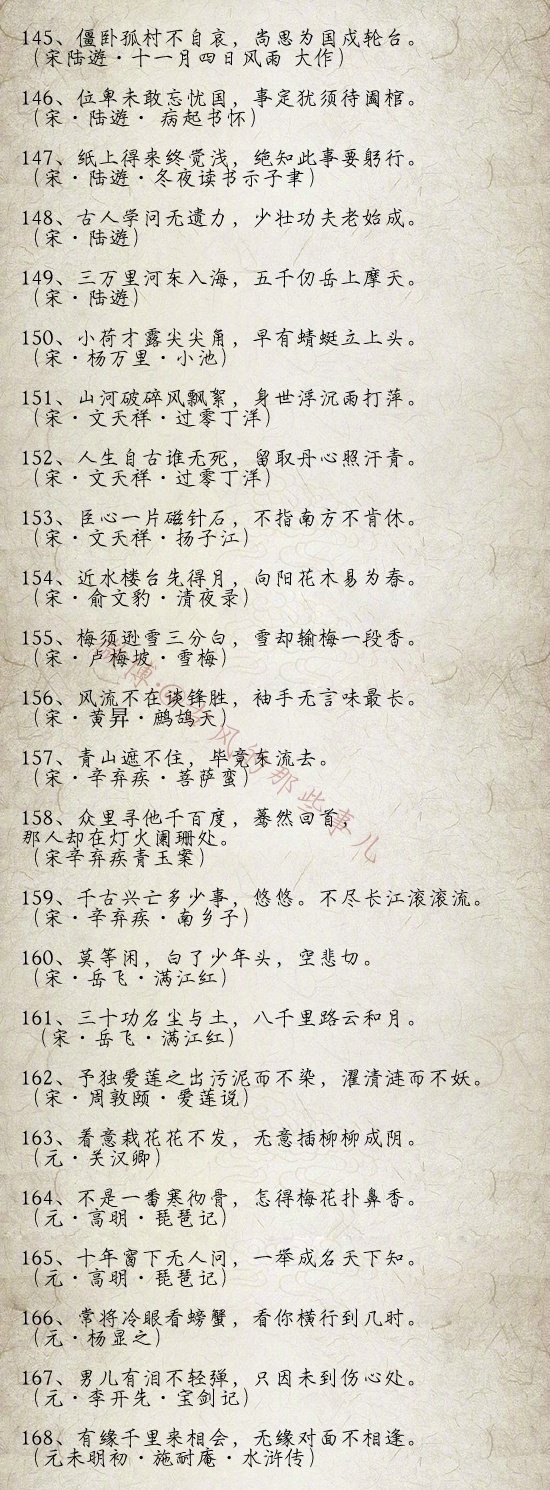 145、僵卧孤村不自哀，尚思为国戍轮台。
（宋陆遊·十一月四日风雨 大作）
146、位卑未敢忘忧国，事定犹须待阖棺。
（宋·陆遊· 病起书怀）
147、纸上得来终觉浅，绝知此事要躬行。
（宋·陆遊·冬夜读书示子聿）
148、古人学问无遗力，少壮功夫老始成。
（宋·陆遊）
149、三万里河东入海，五千仞岳上摩天。
（宋·陆遊）
150、小荷才露尖尖角，早有蜻蜓立上头。
（宋·杨万里·小池）
151、山河破碎风飘絮，身世浮沉雨打萍。
（宋·文天祥·过零丁洋）
152、人生自古谁无死，留取丹心照汗青。
（宋·文天祥·过零丁洋）
153、臣心一片磁针石，不指南方不肯休。
（宋·文天祥·扬子江）
154、近水楼台先得月，向阳花木易为春。
（宋·俞文豹·清夜录）
155、梅须逊雪三分白，雪却输梅一段香。
（宋·卢梅坡·雪梅）
156、风流不在谈锋胜，袖手无言味最长。
（宋·黄昇·鹧鸪天）
157、青山遮不住，毕竟东流去。
（宋·辛弃疾·菩萨蛮）
158、众里寻他千百度，蓦然回首，
那人却在灯火阑珊处。
（宋辛弃疾青玉案）
159、千古兴亡多少事，悠悠。不尽长江滚滚流。
（宋·辛弃疾·南乡子）
160、莫等闲，白了少年头，空悲切。
（宋·岳飞·满江红）
161、三十功名尘与土，八千里路云和月。
（宋·岳飞·满江红）
162、予独爱莲之出污泥而不染，濯清涟而不妖。
（宋·周敦颐·爱莲说）
163、着意栽花花不发，无意插柳柳成阴。
（元·关汉卿）
164、不是一番寒彻骨，怎得梅花扑鼻香。
（元·高明·琵琶记）
165、十年窗下无人问，一举成名天下知。
（元·高明·琵琶记）
166、常将冷眼看螃蟹，看你横行到几时。
（元·杨显之）
167、男儿有泪不轻弹，只因未到伤心处。
（元·李开先·宝剑记）
168、有缘千里来相会，无缘对面不相逢。
（元末明初·施耐庵·水浒传）